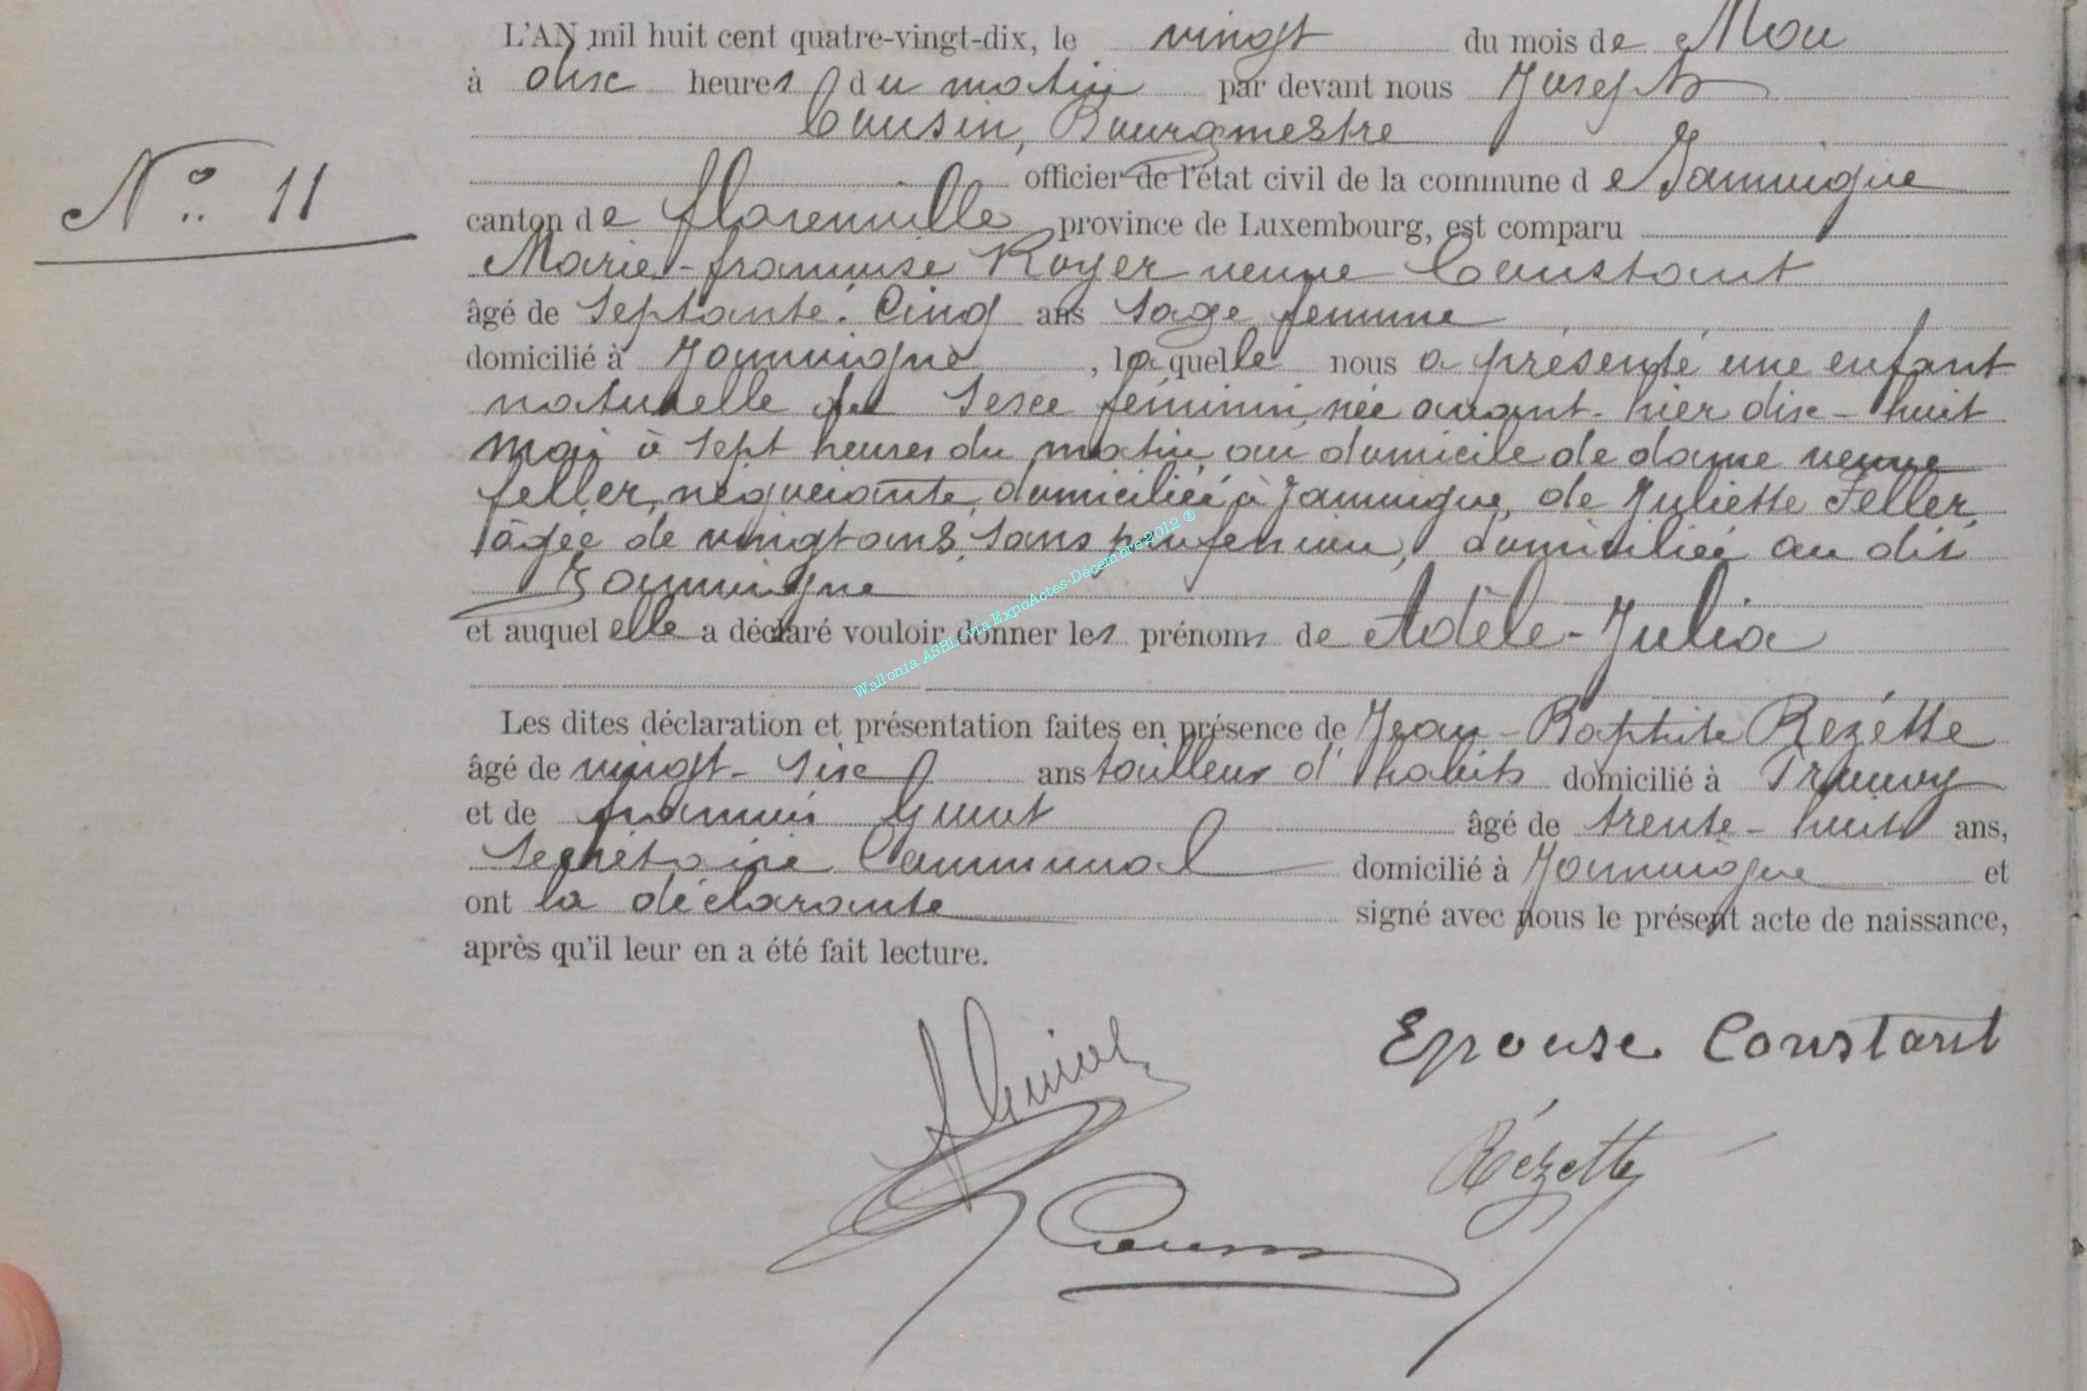 L'AN mil huit cent quatre-vingt-dix, le vingt du mois de Mai
à dix heures du matin par devant nous Joseph
Cousin, Bourgmestre
officier de l'état civil de la commune de Jamoigne
N° 11
canton de florenville province de Luxembourg, est comparu
Marie-françoise Royer veuve Constant
âgé de septante-cinq ans sage femme
domicilié à Jamoigne, laquelle nous a présenté une enfant
naturelle du sexe féminin, née avant-hier dix-huit
mai à sept heures du matin au domicile de dame veuve
feller, négociante, domiciliée à Jamoigne, de Juliette Feller,
âgée de vingt ans, sans profession, domiciliée au dit
Jamoigne
et auquel elle a déclaré vouloir donner les prénoms de Adèle-Julia
Wallonia ASBL via ExpoActes-Décembre 2012 ®
Les dites déclaration et présentation faites en présence de Jean-Baptiste Rezétte
âgé de vingt-six ans tailleur d'habits domicilié à
et de françois âgé de trente-huit ans,
Secrétaire Communal domicilié à Jamoigne et
ont la déclarante signé avec nous le présent acte de naissance,
après qu'il leur en a été fait lecture.
Epouse Constant
Rézette
Cousin